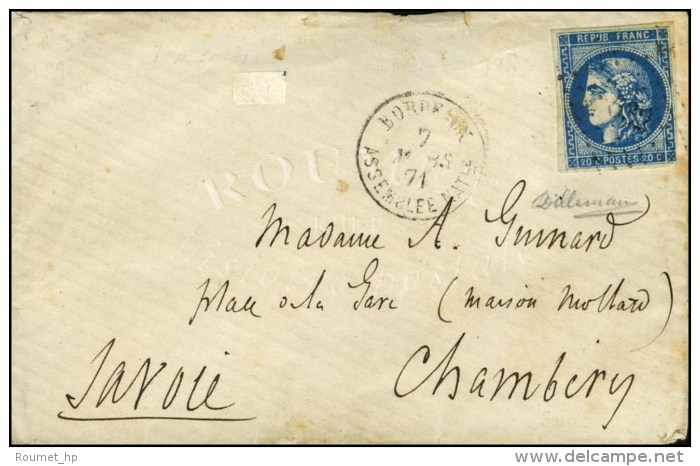 REPUB. FRANC.
20 C POSTES 20 C
BORDEAUX
7
MARS
71
ASSEMBLÉE NATLE
Madame A. Guinard
place de la Gare (maison Mollard)
Chambéry
Savoie
Roumet_hp
www.delcampe.net